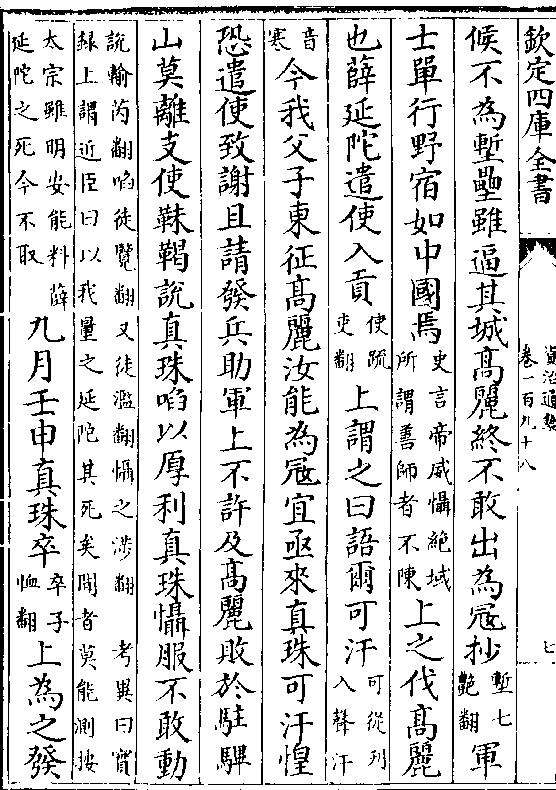 欽定四庫全書
資治通鑑
卷一百九十八
七
候不為塹壘雖逼其城高麗終不敢出為冦抄塹七艷翻軍
士單行野宿如中國焉史言帝威懾絶域所謂善師者不陳上之伐高麗
也薛延陀遣使入貢使疏吏翻上謂之曰語爾可汗可從刋入聲汗
音寒今我父子東征高麗汝能為冦宜亟來真珠可汗惶
恐遣使致謝且請發兵助軍上不許及高麗敗於駐驆
山莫離支使靺鞨說真珠啗以厚利真珠懾服不敢動
說輸芮翻啗徒覽翻又徒濫翻懾之涉翻 考異曰實録上謂近臣曰以我量之延陀其死矣聞者莫能測按
太宗雖明安能料薛延陀之死今不取九月壬申真珠卒卒子恤翻上為之發